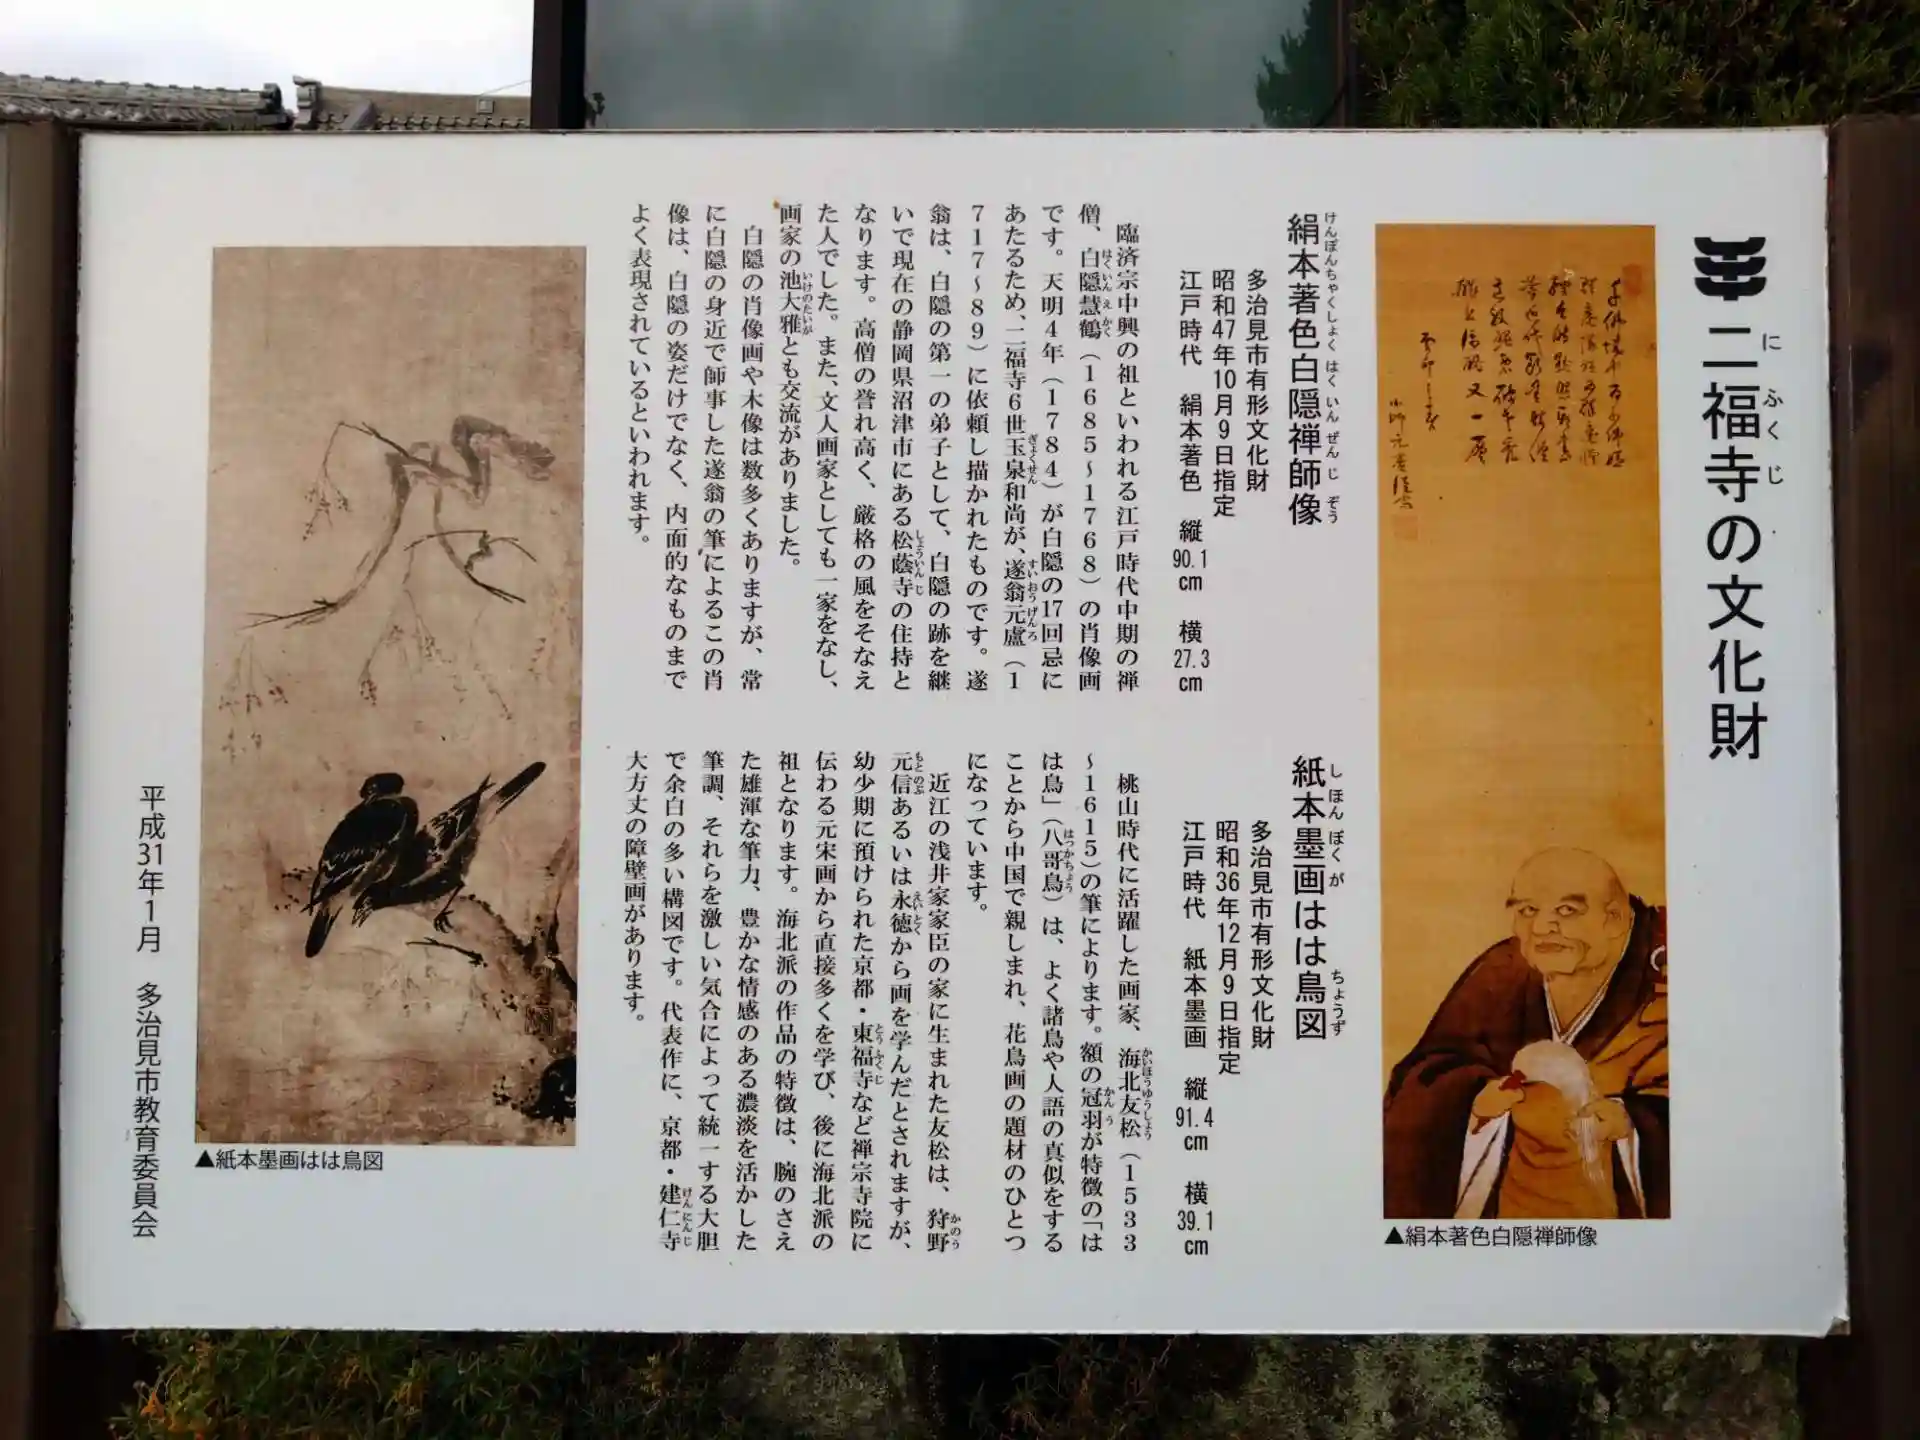 二福寺の文化財
にふくじ
絹本著色白隠禅師像
けんぽんちゃくしょくはくいんぜんじぞう
多治見市有形文化財
昭和47年10月9日指定
江戸時代 絹本著色 縦90.1cm 横27.3cm
臨済宗中興の祖といわれる江戸時代中期の禅
僧、白隠慧鶴(1685~1768)の肖像画
はくいんえかく
です。天明4年(1784)が白隠の17回忌に
あたるため、二福寺6世玉泉和尚が、遂翁元盧(1
ぎょくせん すいおうげんろ
717~89)に依頼し描かれたものです。遂
翁は、白隠の第一の弟子として、白隠の跡を継
いで現在の静岡県沼津市にある松蔭寺の住持と
しょういんじ
なります。高僧の誉れ高く、厳格の風をそなえ
た人でした。また、文人画家としても一家をなし、
画家の池大雅とも交流がありました。
いけのたいが
白隠の肖像画や木像は数多くありますが、常
に白隠の身近で師事した遂翁の筆によるこの肖
像は、白隠の姿だけでなく、内面的なものまで
よく表現されているといわれます。
紙本墨画はは鳥図
しほんぼくが ちょうず
多治見市有形文化財
昭和36年12月9日指定
江戸時代 紙本墨画 縦91.4cm 横39.1cm
桃山時代に活躍した画家、海北友松(1533
かいほうゆうしょう
~1615)の筆によります。額の冠羽が特徴の「は
かんう
は鳥」(八哥鳥)は、よく諸鳥や人語の真似をする
はっかちょう
ことから中国で親しまれ、花鳥画の題材のひとつ
になっています。
近江の浅井家家臣の家に生まれた友松は、狩野
かのう
元信あるいは永徳から画を学んだとされますが、
もとのぶ えいとく
幼少期に預けられた京都・東福寺など禅宗寺院に
とうふくじ
伝わる元宋画から直接多くを学び、後に海北派の
祖となります。海北派の作品の特徴は、腕のさえ
た雄渾な筆力、豊かな情感のある濃淡を活かした
筆調、それらを激しい気合によって統一する大胆
で余白の多い構図です。代表作に、京都・建仁寺
けんにんじ
大方丈の障壁画があります。
▲絹本著色白隠禅師像
▲紙本墨画はは鳥図
平成31年1月 多治見市教育委員会